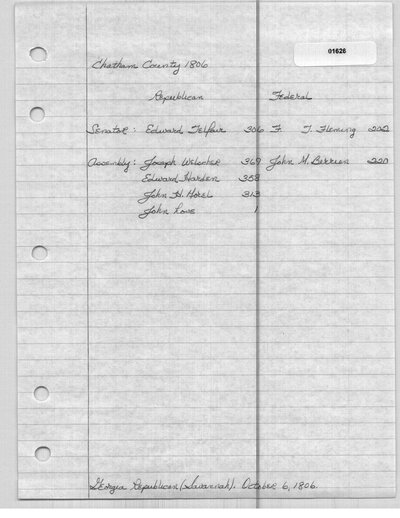 01626
Chatham County 1806
Republican Federal
Senator: Edward Telfair 306 F. T. Fleming 222
Assembly: Joseph Welscher 369 John M. Berrien 220
Edward Harden 358
John H. 313
John Love 1
Georgia Republican (Savannah). October 6, 1806.